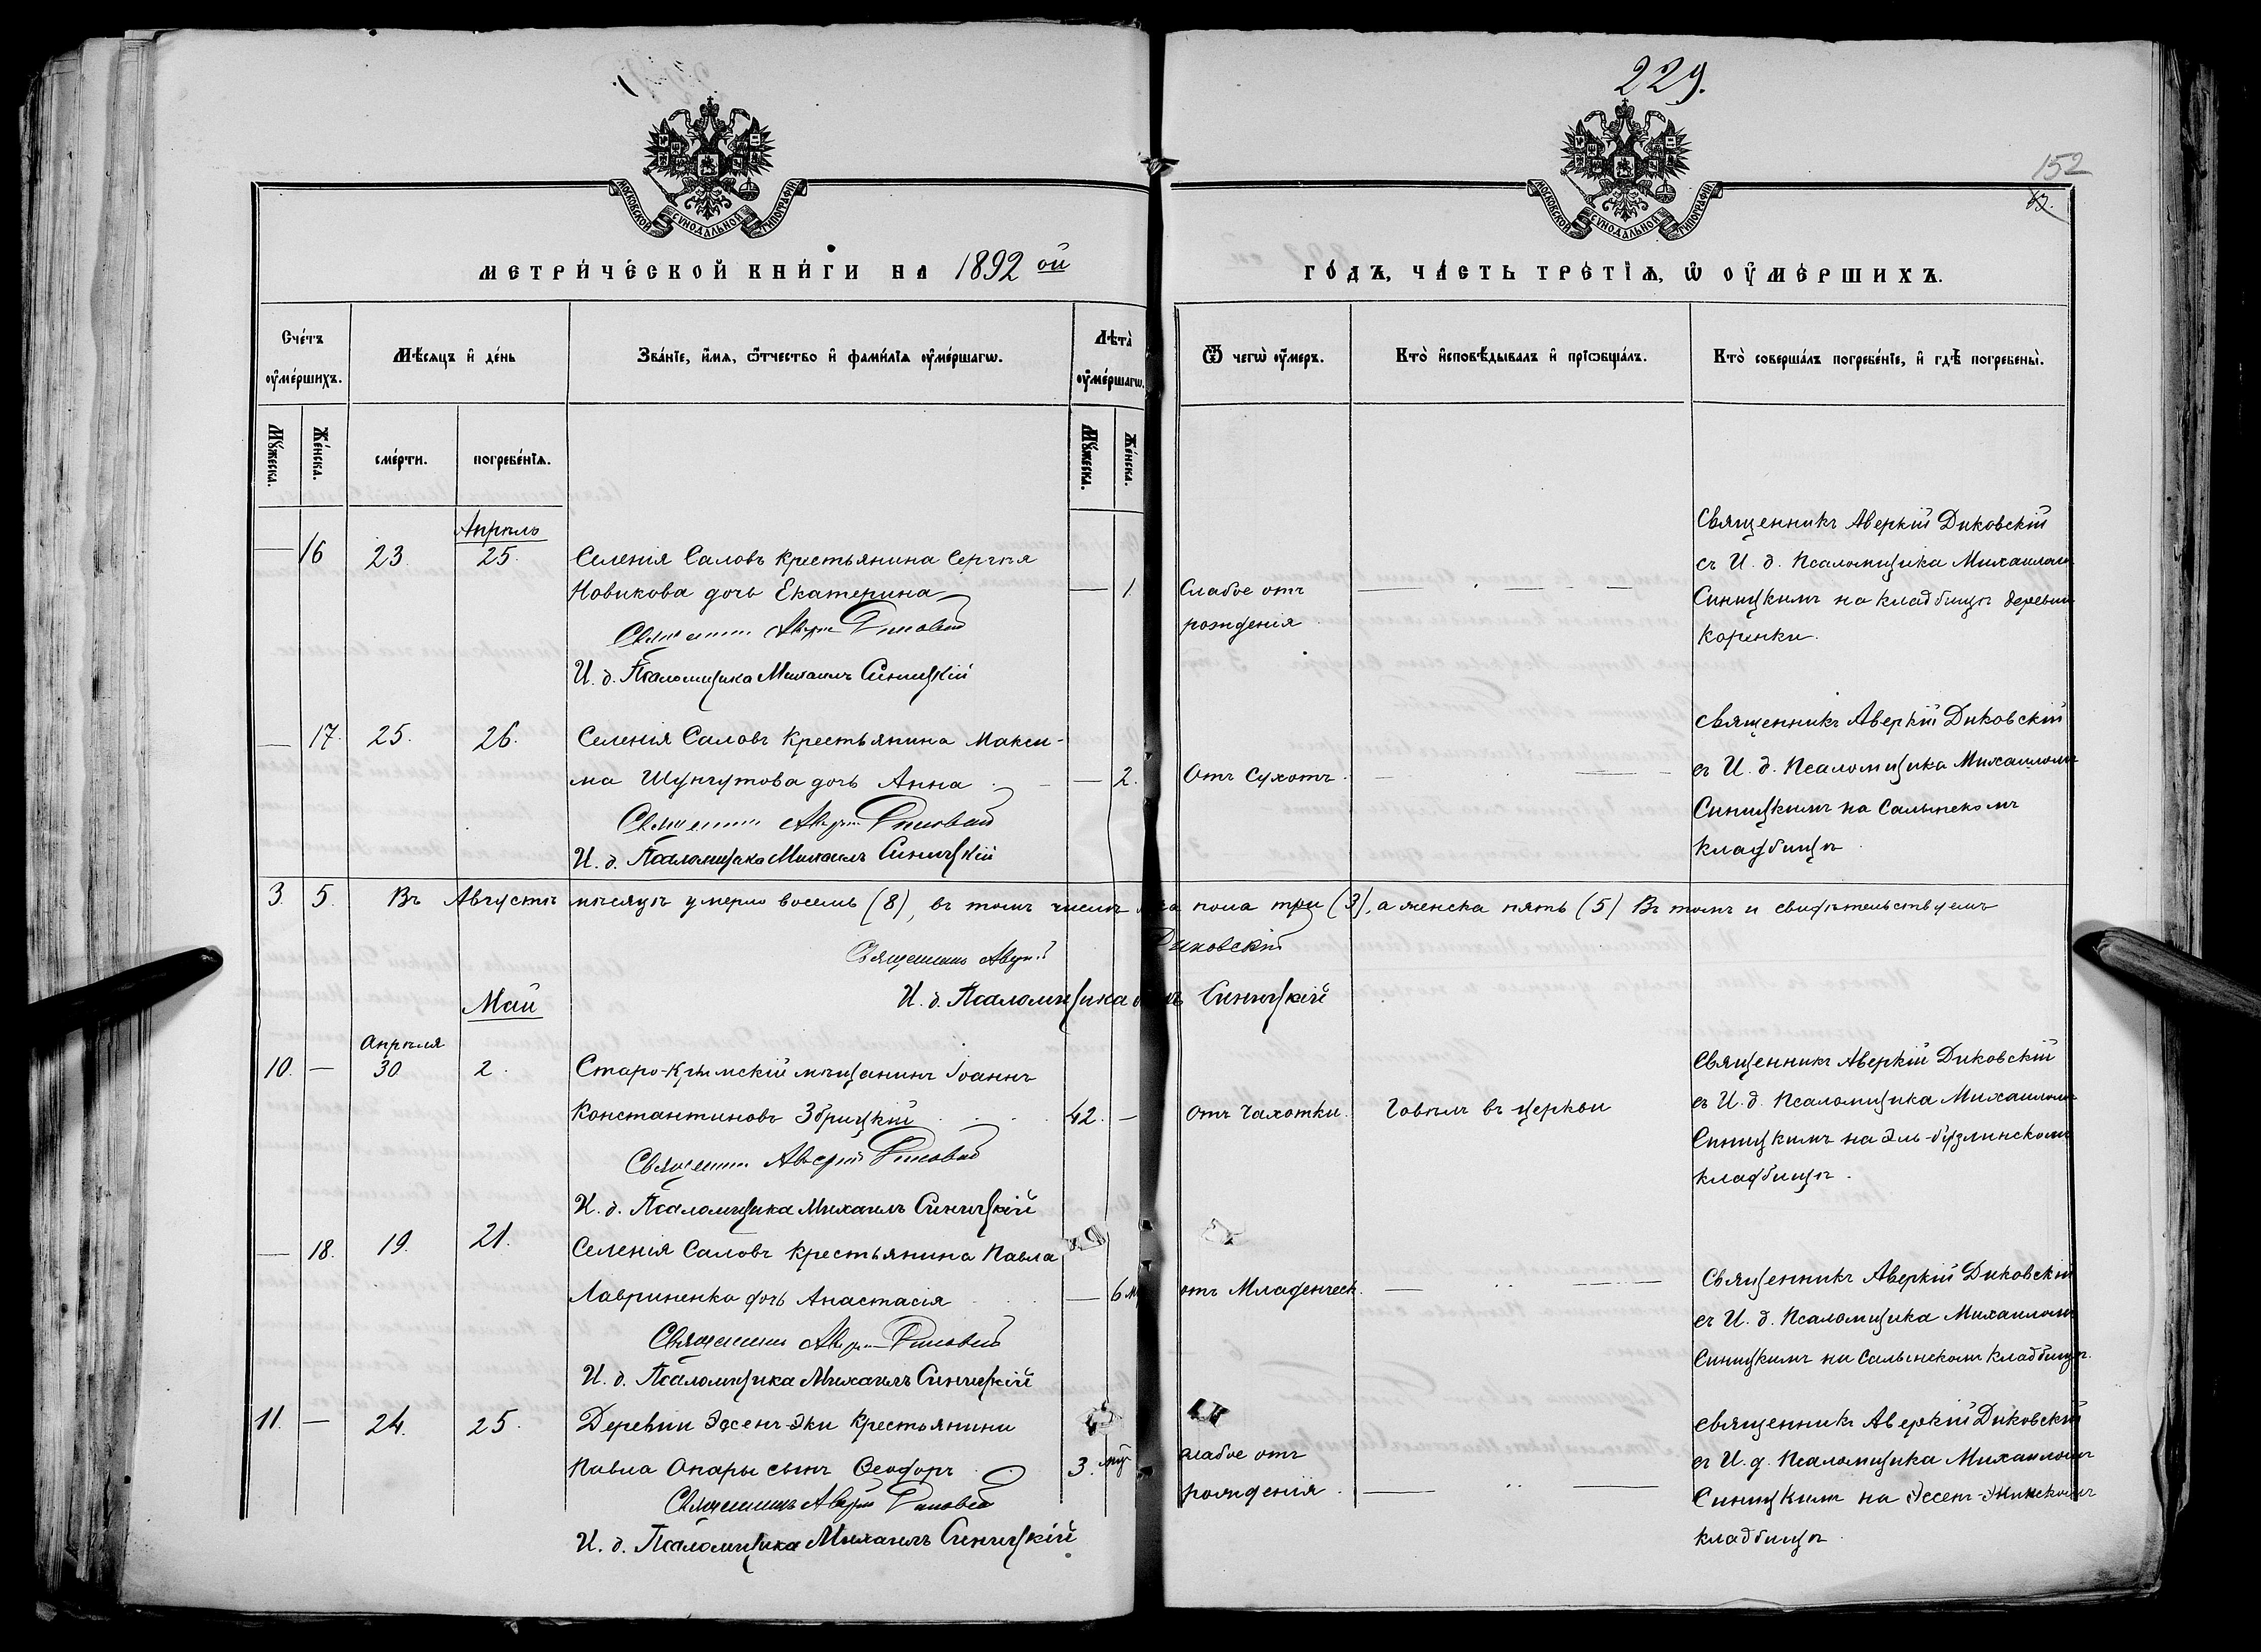 229.
152
МОСКОВСКОЙ СѴНОДАЛЬНОЙ ТИПОГРАФІИ
МОСКОВСКОЙ СѴНОДАЛЬНОЙ ТИПОГРАФІИ
МЕТРИ́ЧЕСКОЙ КНИ́ГИ НА 1892 ой
ГО́ДЪ, ЧА́СТЬ ТРЕ́ТІѦ, Ѡ ОУ҆МЕ́РШИХЪ.
Сче́тъ оу҆ме́ршихъ.
Мꙋ́жеска.
Же́нска.
Мѣ́сѧцъ и҆ де́нь
сме́рти.
погребе́нїѧ.
Зва́нїе, и҆́мѧ, ѻ҆́тчество и҆ фами́лїѧ оу҆ме́ршагѡ.
Лѣ́та̀ оу҆ме́ршагѡ.
Мꙋ́жеска.
Же́нска.
Ѿ чегѡ̀ оу҆́меръ.
Кто̀ и҆сповѣ́дывалъ и҆ прїѡбща́лъ.
Кто̀ соверша́лъ погребе́нїе, и҆ гдѣ̀ погребены̀.
Апрѣль
— 16 23. 25. Селенія Саловъ крестьянина Сергѣя
Новикова дочь Екатерина — 1. Слабое отъ
рожденія
Священникъ Аверкій Диковскій
И. д. Псаломщика Михаилъ Синицкій
Священникъ Аверкій Диковскій
съ И. д. Псаломщика Михаиломъ
Синицкимъ на кладбищѣ деревни
Коренки.
— 17. 25. 26. Селенія Саловъ крестьянина Макси-
ма Шунгутова дочь Анна — 2. Отъ Сухотъ.
Священникъ Аверкій Диковскій
И. д. Псаломщика Михаилъ Синицкій
Священникъ Аверкій Диковскій
съ И. д. Псаломщика Михаиломъ
Синицкимъ на Салынскомъ
кладбищѣ
3. 5. Въ Августѣ мѣсяцѣ умерло восемь (8), въ томъ числѣ пола три (3), а женска пять (5) Въ томъ и свидѣтельствуемъ
Священникъ Аверкій Диковскій
И. д. Псаломщика Синицкій
Май
Апрѣля
10. — 30 2. Старо-Крымскій мѣщанинъ Іоаннъ
Константиновъ Збрицкій 42. — Отъ Чахотки. Говѣлъ въ церкви
Священникъ Аверкій Диковскій
И. д. Псаломщика Михаилъ Синицкій
Священникъ Аверкій Диковскій
съ И. д. Псаломщика Михаиломъ
Синицкимъ на Эль-бузлинскомъ
кладбищѣ.
— 18. 19. 21. Селенія Саловъ крестьянина Павла
Лавриненко дочь Анастасія — 6 отъ Младенческ.
Священникъ Аверкій Диковскій
И. д. Псаломщика Михаилъ Синицкій
Священникъ Аверкій Диковскій
съ И. д. Псаломщика Михаиломъ
Синицкимъ на Салынскомъ кладбищѣ.
11. — 24. 25. Деревни Эссенъ-Эки крестьянини
Павла Опары сынъ Ѳеодоръ 3. слабое отъ
рожденія
Священникъ Аверкій Диковскій
И. д. Псаломщика Михаилъ Синицкій
Священникъ Аверкій Диковскій
съ И. д. Псаломщика Михаиломъ
Синицкимъ на Эссенъ-Экинскомъ
кладбищѣ.